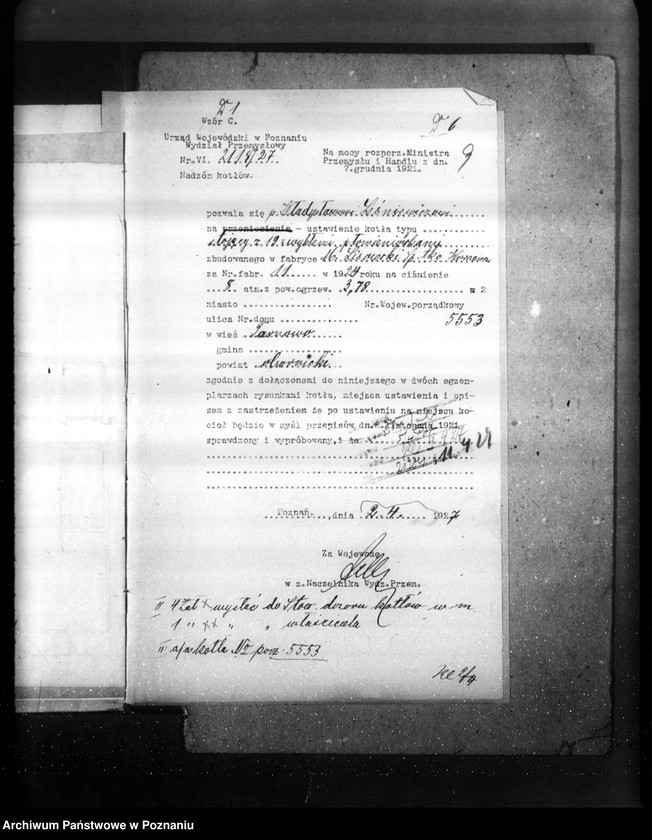 D 1
Wzór C.
D 6
9
Urząd Wojewódzki w Poznaniu
Wydział Przemysłowy
Nr.VI. 2118/27.
Nadzór kotłów.
Na mocy rozporz.Ministra
Przemysłu i Handlu z dn.
7.grudnia 1921.
pozwala się p. Władysławowi Leśniewiczowi
na przeniesienie - ustawienie kotła typu
stojący z 19 zwykłemi płomieniówkami
zbudowanego w fabryce M. Lisiecki Sp. tko.
za Nr.fabr. 11 w 1924 roku na ciśnienie
8 atm.z pow.ogrzew. 3,78 m 2
miasto Nr.Wojew.porządkowy
ulica Nr.domu 5553
w wieś Tarnowo
gmina
powiat obornicki
zgodnie z dołączonemi do niniejszego w dwóch egzem-
plarzach rysunkami kotła, miejsca ustawienia i opi-
sem z zastrzeżeniem że po ustawieniu na miejscu ko-
cioł będzie w myśl przepisów dn. listopada 1921
sprawdzony i wypróbowany, i że
Poznań, dnia 2. 4. 1927
Za Wojewodę
w z.Naczelnika Wydz.Przem.
II 4 zał x wysłać do Stow. dozoru kotłów w m
1 " xx " " właściciela
II a/a kotła No porz. 5553
Archiwum Państwowe w Poznaniu